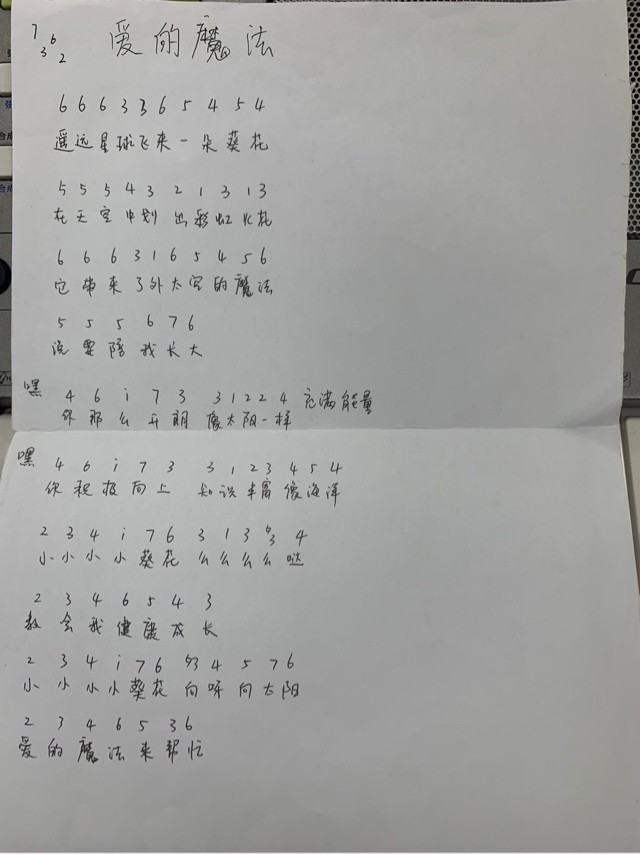 7 6
3 2
爱的魔法
6 6 6 3 3 6 5 4 5 4
遥远星球飞来一朵葵花
5 5 5 4 3 2 1 3 1 3
在天空中划出彩虹火花
6 6 6 3 1 6 5 4 5 6
它带来了外太空的魔法
5 5 5 6 7 6
说要陪我长大
嘿 4 6 i 7 3 3 1 2 2 4 充满能量
你那么开朗 像太阳一样
嘿 4 6 i 7 3 3 1 2 3 4 5 4
你积极向上 知识丰富像海洋
2 3 4 i 7 6 3 1 3 63 4
小小小小葵花 么么么么哒
2 3 4 6 5 4 3
教会我健康成长
2 3 4 i 7 6 63 4 5 7 6
小小小小葵花 向呀向太阳
2 3 4 6 5 3 6
爱的魔法来帮忙